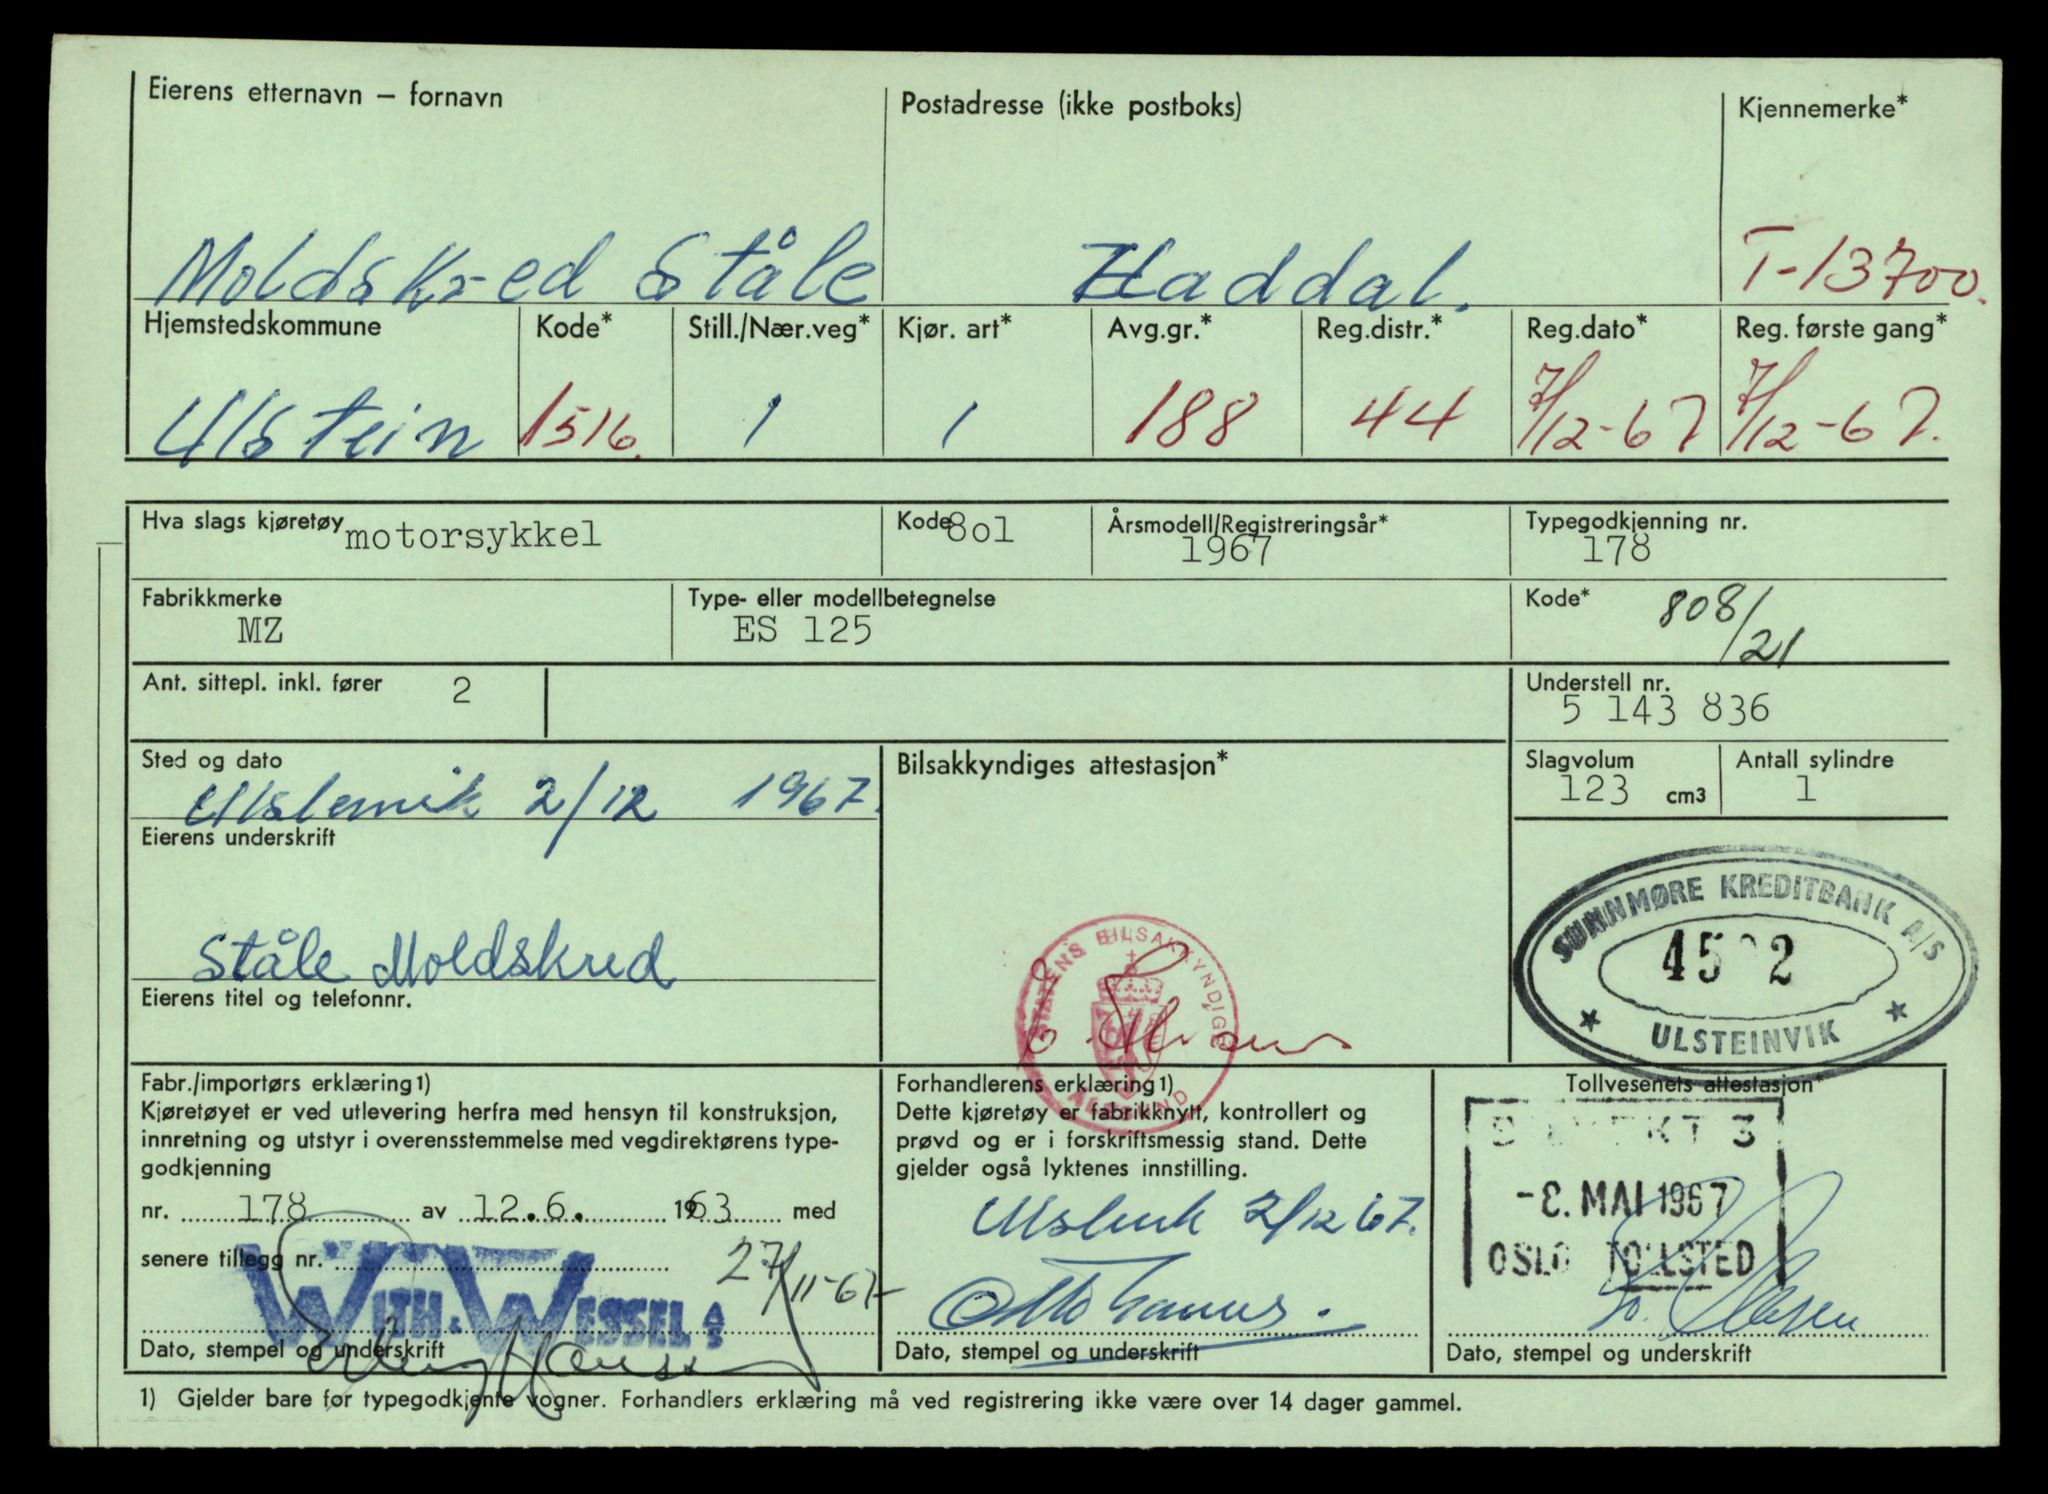 Eierens etternavn – fornavn
Postadresse (ikke postboks)
Kjennemerke*
Moldskred Ståle
Haddal.
T-13700.
Hjemstedskommune
Kode*
Still./Nær.veg*
Kjør. art*
Avg.gr.*
Reg.distr.*
Reg.dato*
Reg. første gang*
Ulstein
1516.
1
1
188
44
7/12-67
7/12-67.
Hva slags kjøretøy motorsykkel
Kode 8o1
Årsmodell/Registreringsår*
1967
Typegodkjenning nr.
178
Fabrikkmerke
MZ
Type- eller modellbetegnelse
ES 125
Kode* 808/21
Ant. sittepl. inkl. fører 2
Understell nr.
5 143 836
Sted og dato
2/12 1967.
Bilsakkyndiges attestasjon*
Slagvolum
123 cm3
Antall sylindre
1
Eierens underskrift
Ståle Moldskred
STATENS BILSAKKYNDIGE
ÅLESUND
SUNNMØRE KREDITBANK A/S
ULSTEINVIK
Eierens titel og telefonnr.
Fabr./importørs erklæring1)
Kjøretøyet er ved utlevering herfra med hensyn til konstruksjon,
innretning og utstyr i overensstemmelse med vegdirektørens type-
godkjenning
nr. 178 av 12.6. 1963 med
senere tillegg nr.
27/11-67-
WITH & WESSEL A/S
Dato, stempel og underskrift
Forhandlerens erklæring1)
Dette kjøretøy er fabrikknytt, kontrollert og
prøvd og er i forskriftsmessig stand. Dette
gjelder også lyktenes innstilling.
2/12 67.
Dato, stempel og underskrift
Tollvesenets attestasjon*
-8. MAI 1967
OSLO TOLLSTED
Dato, stempel og underskrift
1) Gjelder bare for typegodkjente vogner. Forhandlers erklæring må ved registrering ikke være over 14 dager gammel.